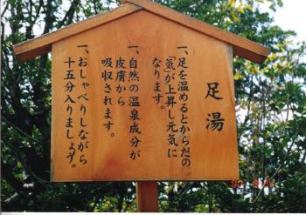 足湯
一、足を温めるとからだの
「気」が上昇し元気に
なります。
一、自然の温泉成分が
皮膚から
吸収されます。
一、おしゃべりしながら
十五分入りましょう。